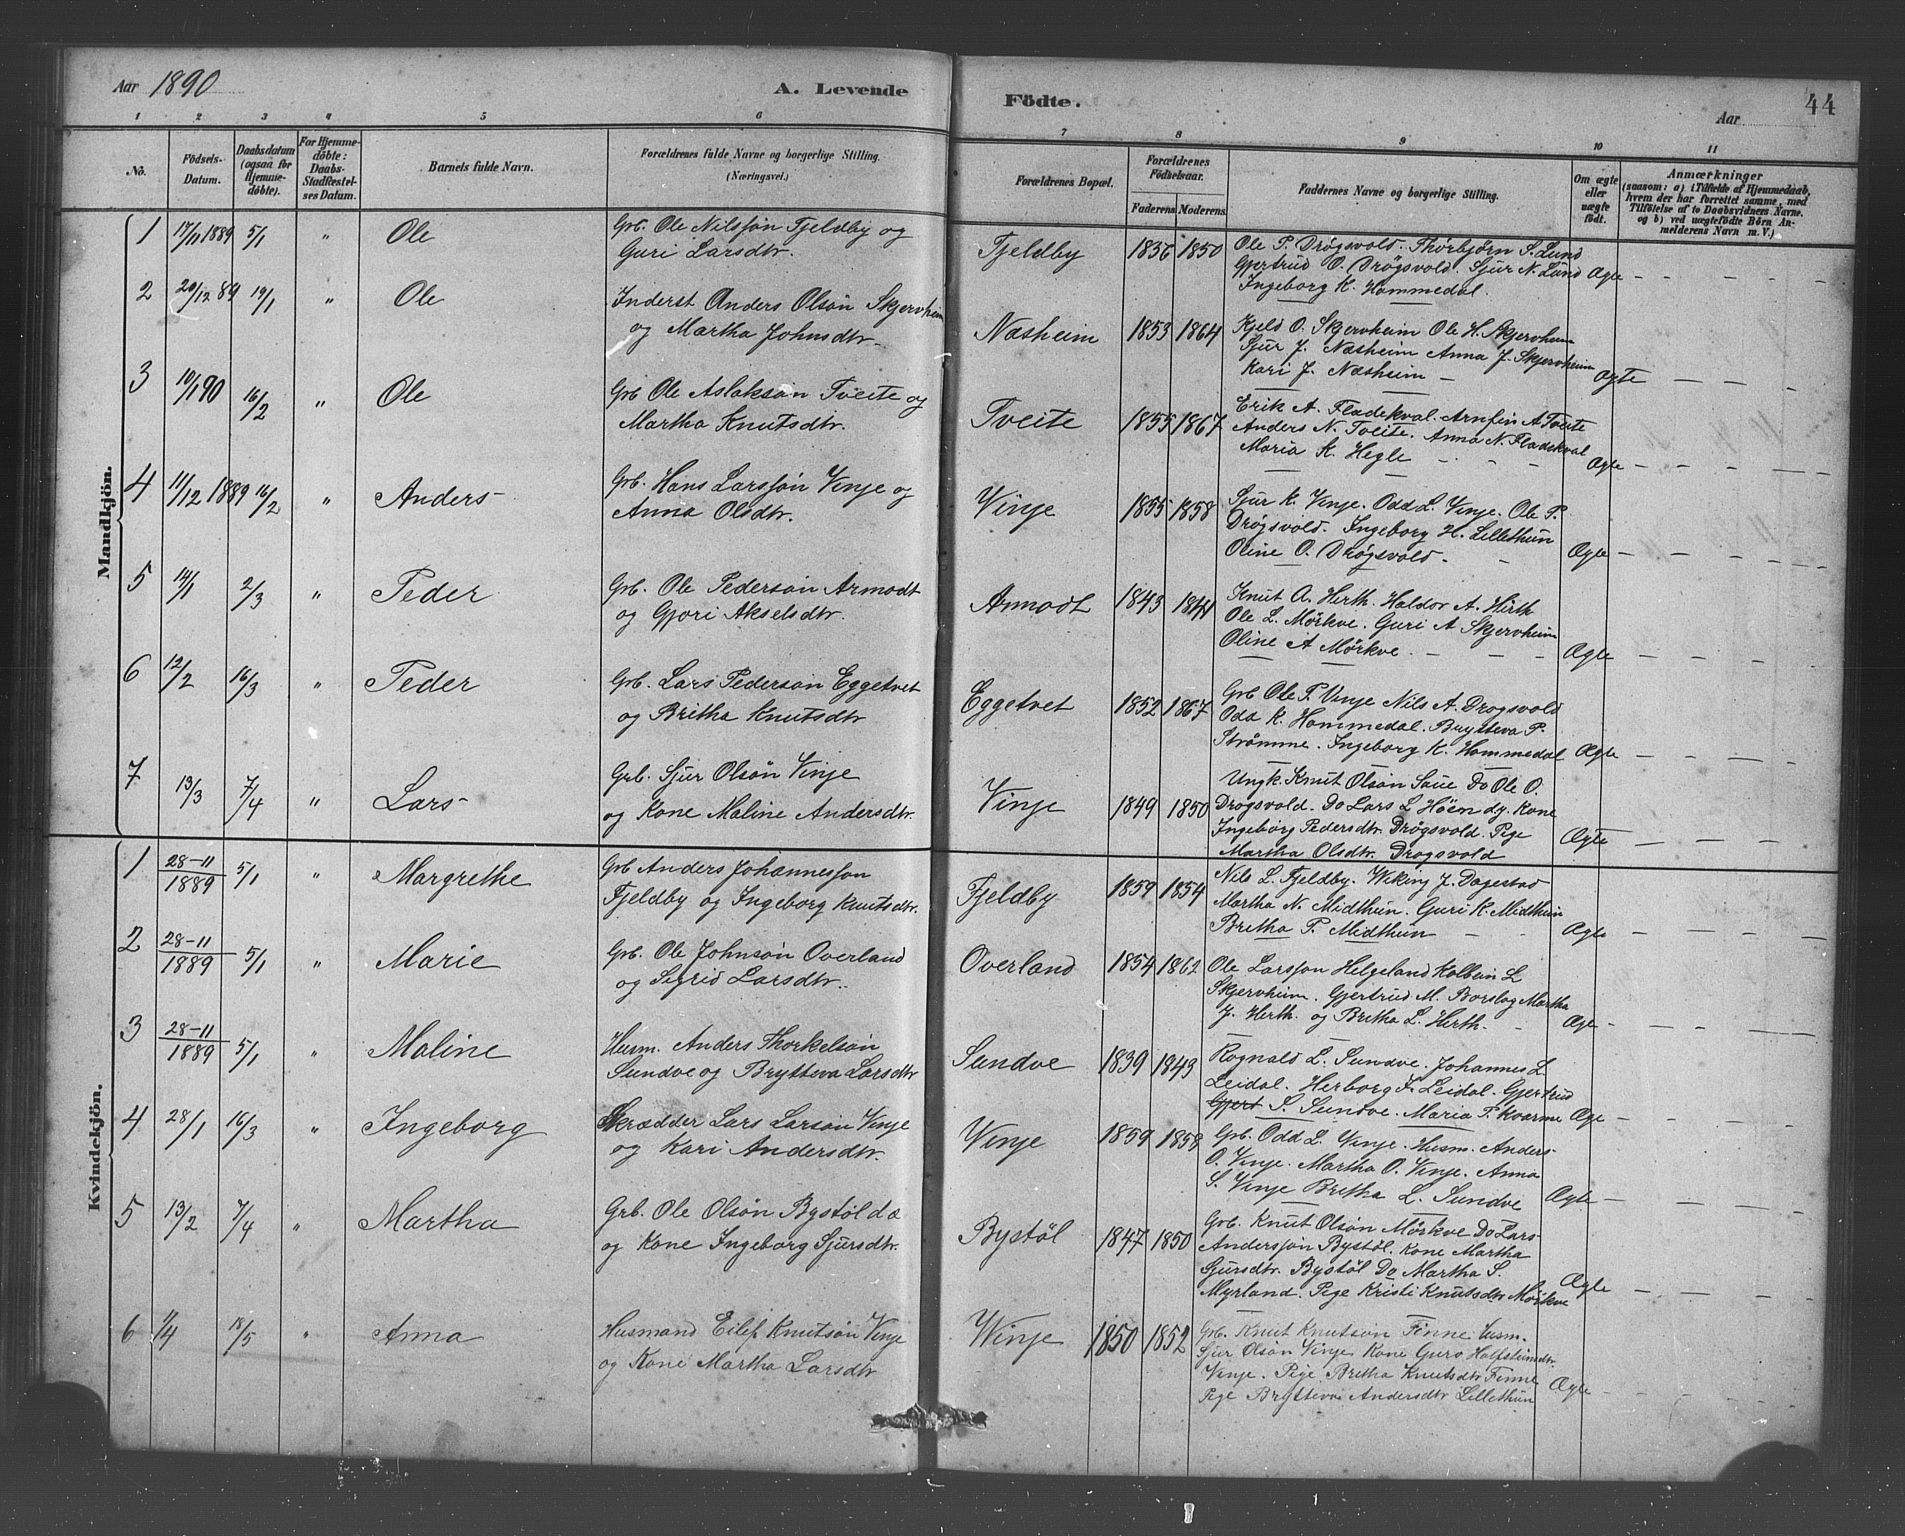 Aar 1890
A. Levende Födte.
Aar
44
1 2 3 4 5 6 7 8 9 10 11
No.
Födsels-Datum.
Daabsdatum (ogsaa for Hjemmedöbte).
For Hjemmedöbte: Daabs-Stadfæstelses Datum.
Barnets fulde Navn.
Forældrenes fulde Navne og borgerlige Stilling. (Næringsvei.)
Forældrenes Bopæl.
Forældrenes Födselsaar.
Faderens. Moderens.
Faddernes Navne og borgerlige Stilling.
Om ægte eller uægte födt.
Anmærkninger
(saasom: a) i Tilfælde af Hjemmedaab, hvem der har forrettet samme, med Tilföielse af to Daabsvidners Navne. og b) ved uægtefödte Börn Anmelderens Navn m. V.)
Mandkjön.
1 17/11 1889 5/1 " Ole
Grb. Ole Nilssøn Fjeldby og
Guri Larsdtr.
Fjeldby 1836 1850
Ole P. Drøgsvold. Thorbjørn S. Lund
Gjertrud O. Drøgsvold. Sjur N. Lund
Ingeborg K. Hommedal.
Ægte
2 20/12 89 19/1 " Ole
Inderst Anders Olsøn Skjervheim
og Martha Johnsdtr.
Næsheim 1853 1864
Kjeld O. Skjervheim Ole H. Skjervheim
Sjur J. Næsheim Anna J. Skjervheim
Kari J. Næsheim
Ægte
3 10/1 90 16/2 " Ole
Grb Ole Aslaksøn Tveite og
Martha Knutsdtr.
Tveite 1855 1867
Erik A. Fladekval. Arnfin A Tveite
Anders N. Tveite. Anna N. Fladekval
Maria K. Hegle
Ægte
4 11/12 1889 16/2 " Anders
Grb. Hans Larssøn Vinje og
Anna Olsdtr.
Vinje 1855 1858
Sjur K. Vinje. Odd L. Vinje. Ole P.
Drøgsvold. Ingeborg H. Lillethun
Oline O. Drøgsvold.
Ægte
5 14/1 2/3 " Peder
Grb. Ole Pedersøn Armodt
og Gjøri Akselsdtr.
Armodt 1843
Knut A. Herth. Haldor A. Hirth
Ole L. Mørkve. Guri A Skjervheim
Oline A Mørkve.
Ægte
6 12/2 16/3 " Peder
Grb. Lars Pedersøn Eggetvet
og Britha Knutsdtr
Eggetvet 1852 1867
Grb Ole P. Vinje Nils A. Drøgsvold
Odd K. Hommedal. Brytteva P.
Strømme. Ingeborg K. Hommedal
Ægte
7 13/3 7/4 " Lars
Grb. Sjur Olsøn Vinje
og Kone Maline Andersdtr.
Vinje 1849 1850
Ungk. Knut Olsøn Saue Do Ole O.
Drøgsvold. Do Lars L Høen og. Kone
Ingeborg Pedersdtr. Drøgsvold. Pige
Martha Olsdtr. Drøgsvold
Ægte
Kvindekjön.
1 28-11 1889 5/1 " Margrethe
Grb Anders Johannessøn
Fjeldby og Ingeborg Knutsdtr.
Fjeldby 1859 1854
Nils L. Fjeldby. Wiking J. Dagestad
Martha N. Midthun. Guri K. Midthun
Bretha P. Midthun
Ægte
2 28-11 1889 5/1 " Marie
Grb. Ole Johnsøn Overland
og Sigrid Larsdtr.
Overland 1854 1862
Ole Larssøn Helgeland Kolbein L
Skjervheim. Gjertrud M. Borslag Martha
J. Herth. og Britha L. Herth.
Æge
3 28-11 1889 5/1 " Maline
Husm. Anders Thorkelsøn
Sundve og Brytteva Larsdtr
Sundve 1839 1843
Rognald L. Sundve. Johannes L.
Leidal. Herborg L. Leidal. Gjertrud
Gjert S. Sundve. Maria P. Kvarme
Æge
4 28/1 16/3 " Ingeborg
Skrædder Lars Larsøn Vinje
og Kari Andersdtr.
Vinje 1859 1858
Grb. Odd L. Vinje. Husm. Anders
O. Vinje. Martha O. Vinje. Anna
S. Vinje Bretha L. Sundve
Ægte
5 13/2 7/4 " Martha
Grb. Ole Olsøn Bystøl
og Kone Ingeborg Sjursdtr.
Bystøl 1847 1850
Grb. Knut Olsøn Mørkve Do Lars
Anderssøn Bystøl. Kone Martha
Sjursdtr. Bystøl Do Martha S.
Myrland. Pige Kristi Knutsdtr Mørkve
Ægte
6 1/4 18/5 " Anna
Husmand Eilef Knutsøn Vinje
og Kone Martha Larsdtr
Winje 1850 1852
Grb. Knut Knutsøn Finne Husm.
Sjur Olsøn Vinje Kone Guro Halfsteinsdtr.
Vinje. Pige Britha Knutsdtr Finne
Pige Brytteva Andersdtr Lillethun
Ægte